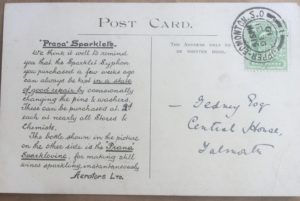 POST CARD.
"Prana" Sparklets.
We think it well to remind
you that the Sparklet Syphon
you purchased a few weeks ago
can always be kept in a state
of good repair by occasionally
changing the pins & washers.
These can be purchased at 2d
each at nearly all Stores &
Chemists.
The bottle shown in the picture
on the other side is the "Prana"
Sparkloving, for making still
wines sparkling instantaneously.
Aerators Ltd.
THE ADDRESS ONLY TO
BE WRITTEN HERE.
EDMONTON S.O
Gedney Esq
Central House,
Falmouth